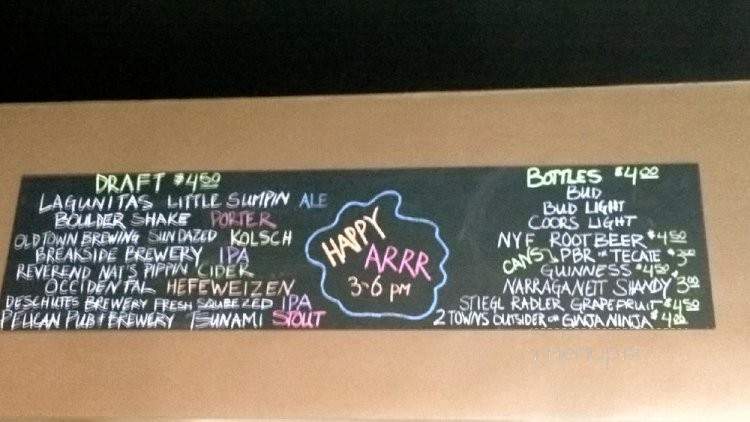 DRAFT $4.50
LAGUNITAS LITTLE SUMPIN ALE
BOULDER SHAKE PORTER
OLD TOWN BREWING SUN DAZED KOLSCH
BREAKSIDE BREWERY IPA
REVEREND NAT'S PIPPIN CIDER
OCCIDENTAL HEFEWEIZEN
DESCHUTES BREWERY FRESH SQUEEZED IPA
PELICAN PUB & BREWERY TSUNAMI STOUT
HAPPY
ARRR
3-6 PM
BOTTLES $4.00
BUD
BUD LIGHT
COORS LIGHT
NYF ROOT BEER $4.50
CANS PBR OR TECATE $3.00
GUINNESS $4.50
NARRAGANSETT SHANDY 3.00
STIEGL RADLER GRAPEFRUIT $4.50
2 TOWNS OUTSIDER OR GINJA NINJA $4.00